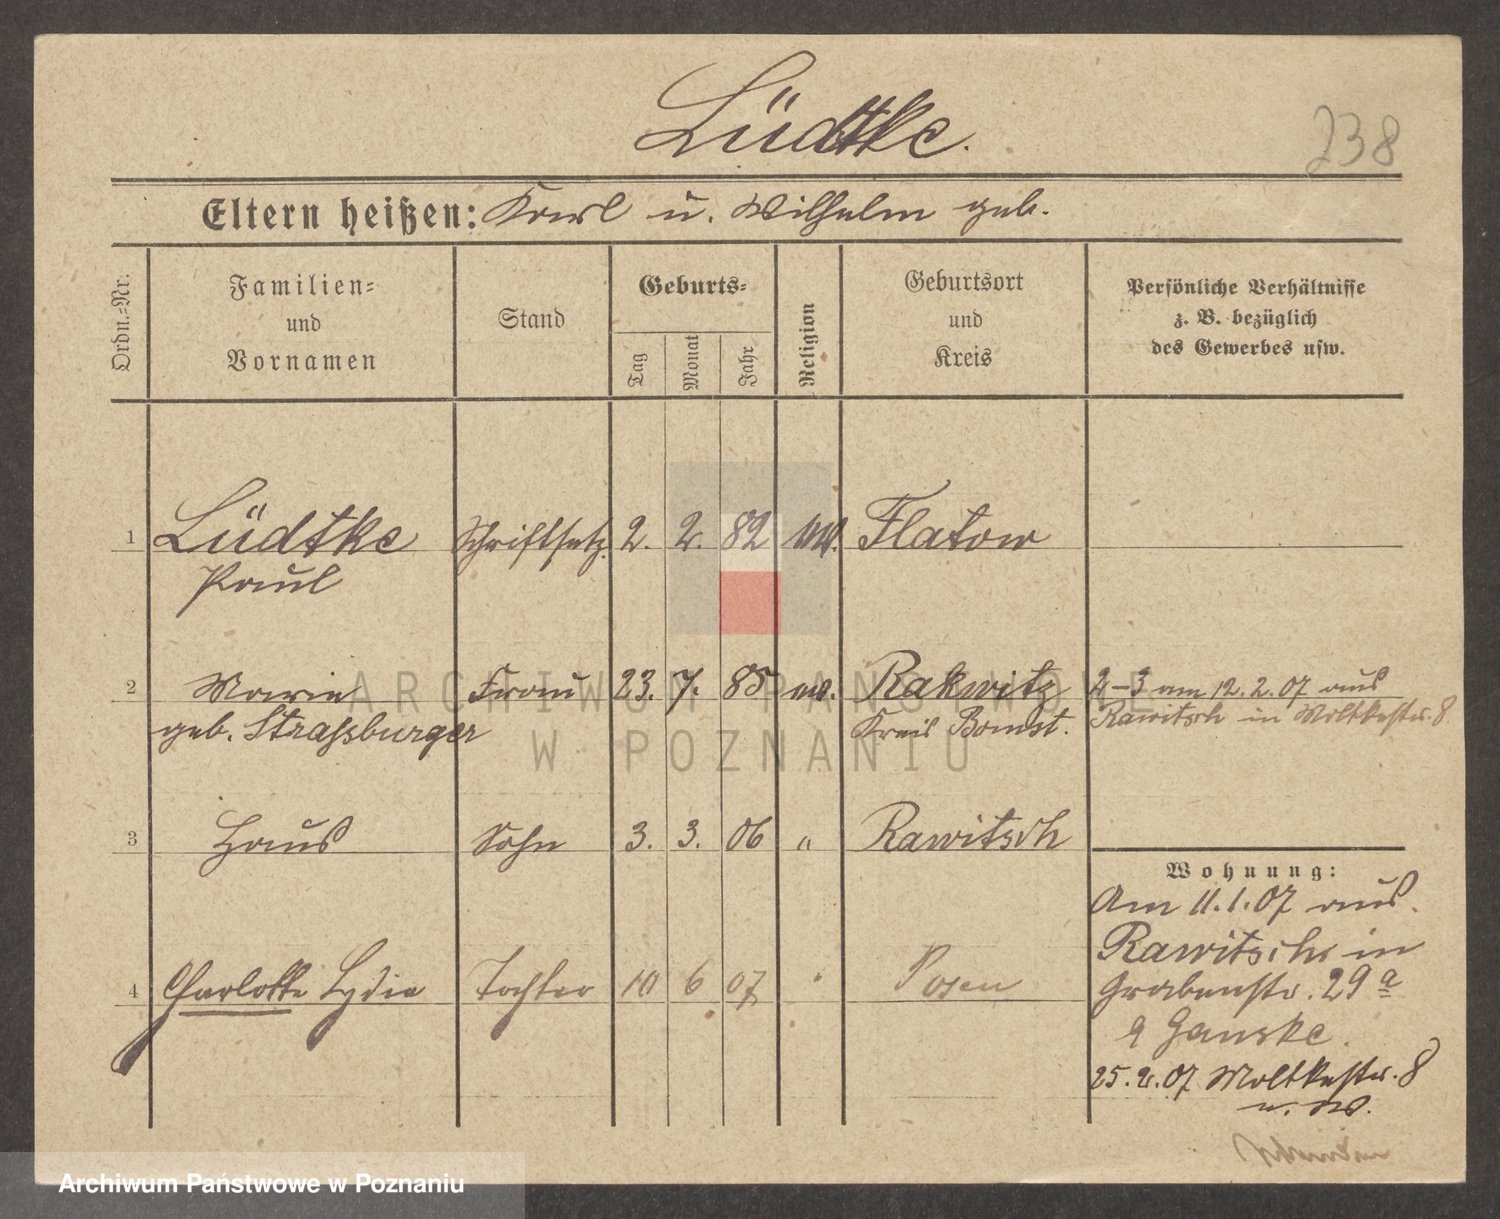 Lüdtke.
238
Eltern heißen: Karl u. Wilhelm geb.
Ordn.=Nr.
Familien=
und
Vornamen
Stand
Geburts=
Tag
Monat
Jahr
Religion
Geburtsort
und
Kreis
Persönliche Verhältnisse
z. B. bezüglich
des Gewerbes usw.
1 Lüdtke Schriftsetz. 2. 2. 82 ev. Flatow
Paul
2 Marie Frau 23. 7. 85 ev. Rakwitz 2-3 am 12.2.07 aus
geb. Straßburger Kreis Bomst. Rawitsch in Moltkestr. 8
3 Hans Sohn 3. 3. 06 " Rawitsch
Wohnung:
Am 11.1.07 aus
Rawitsch in
4 Charlotte Lydia Tochter 10 6 07 " Posen Grabenstr. 29a
Ganske.
25.2.07 Moltkestr. 8
ARCHIWUM PAŃSTWOWE
W POZNANIU
Archiwum Państwowe w Poznaniu